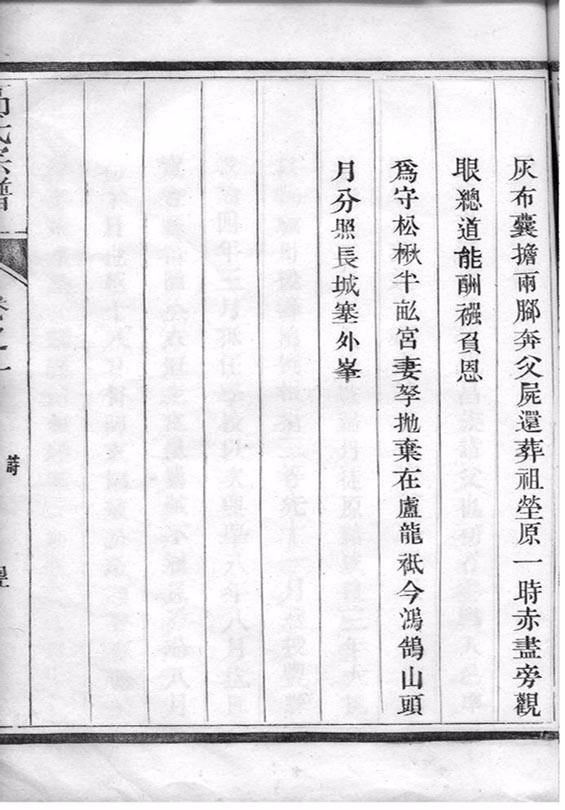 灰布囊擔兩腳奔父屍還葬祖塋原一時赤盡旁觀
眼總道能酬襁負恩
爲守松楸半畝宮妻孥拋棄在盧龍祇今鴻鵠山頭
月分照長城塞外峯
氏宗譜
詩